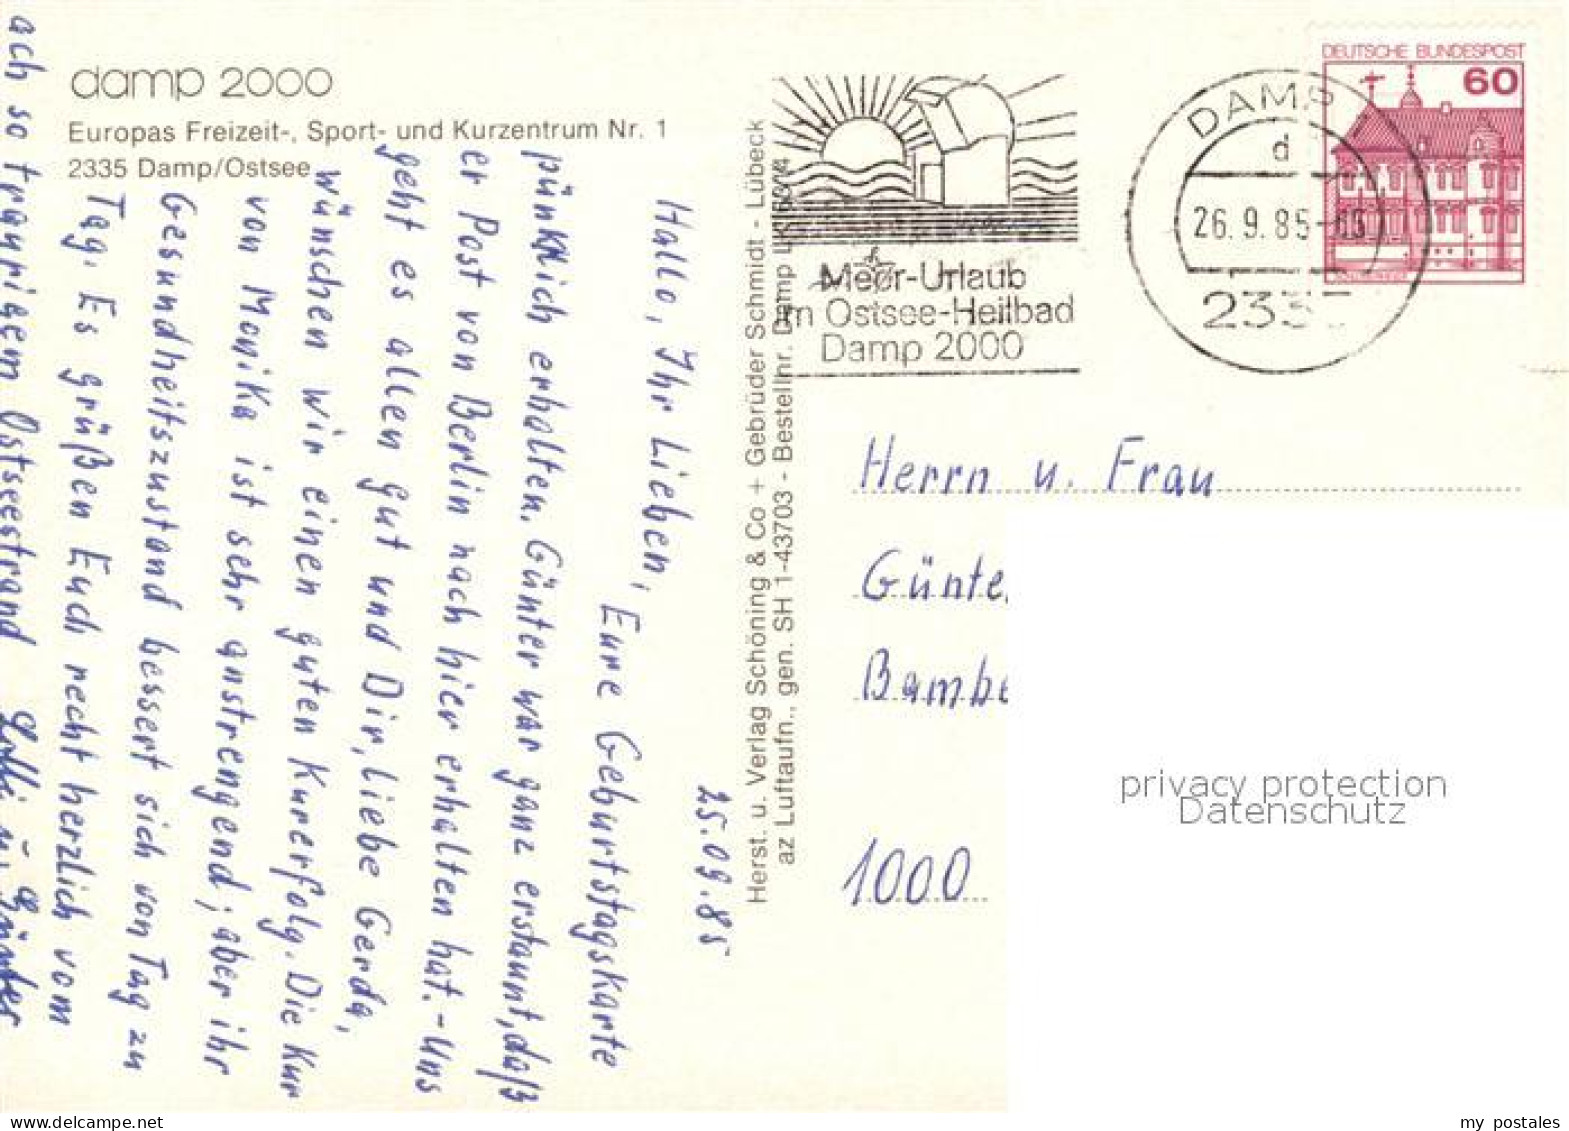 damp 2000
Europas Freizeit-, Sport- und Kurzentrum Nr. 1
2335 Damp/Ostsee
25.09.85
Hallo, Ihr Lieben,
Eure Geburtstagskarte
pünktlich erhalten. Günter war ganz erstaunt, daß
er Post von Berlin nach hier erhalten hat. - Uns
geht es allen gut und Dir, liebe Gerda,
wünschen wir einen guten Kurerfolg. Die Kur
von Monika ist sehr anstrengend; aber ihr
Gesundheitszustand bessert sich von Tag zu
Tag. Es grüßen Euch recht herzlich vom
ach so traurigem Ostseestrand Lolli u. Günter
Herst. u. Verlag Schöning & Co + Gebrüder Schmidt - Lübeck
az Luftaufn., gen. SH 1-43703 - Bestellnr. Damp
Meer-Urlaub
im Ostsee-Heilbad
Damp 2000
DAMP
d
26.9.85
233
DEUTSCHE BUNDESPOST
60
Herrn u. Frau
Günte
Bambe
1000
privacy protection
Datenschutz
my postales